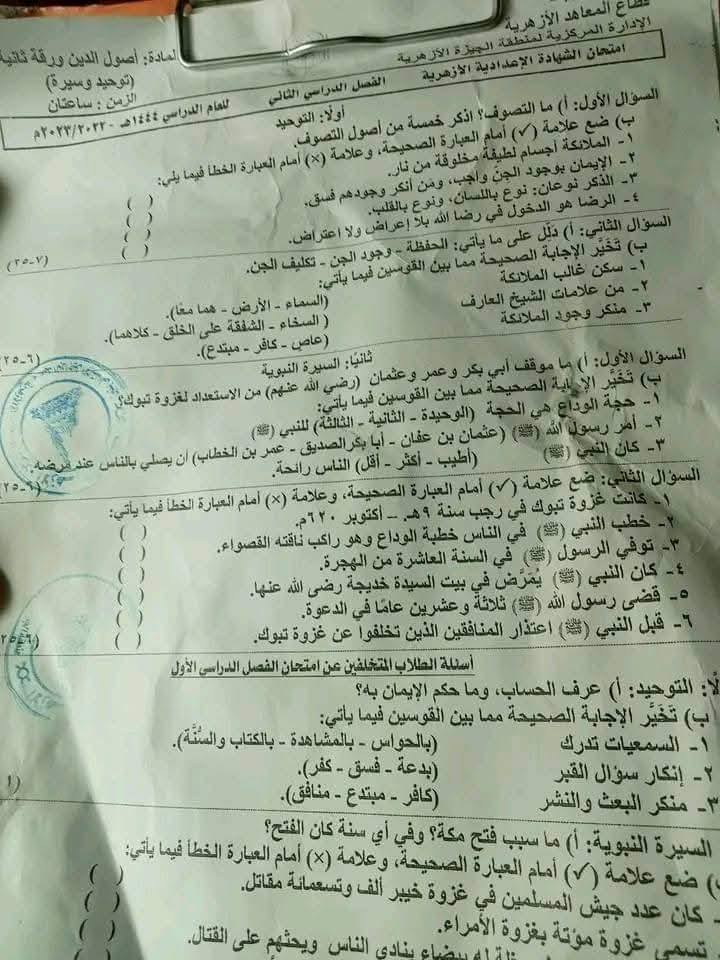 قطاع المعاهد الأزهرية
الإدارة المركزية لمنطقة الجيزة الأزهرية
المادة: أصول الدين ورقة ثانية
(توحيد وسيرة)
الزمن: ساعتان
امتحان الشهادة الإعدادية الأزهرية الفصل الدراسي الثاني للعام الدراسي ١٤٤٤هـ - ٢٠٢٢/٢٠٢٣م
أولًا: التوحيد
السؤال الأول: أ) ما التصوف؟ اذكر خمسة من أصول التصوف.
ب) ضع علامة (✓) أمام العبارة الصحيحة، وعلامة (×) أمام العبارة الخطأ فيما يلي:
١- الملائكة أجسام لطيفة مخلوقة من نار. ( )
٢- الإيمان بوجود الجن واجب، ومن أنكر وجودهم فسق. ( )
٣- الذكر نوعان: نوع باللسان، ونوع بالقلب. ( )
٤- الرضا هو الدخول في رضا الله بلا إعراض ولا اعتراض. ( )
(٧-٢٥)
السؤال الثاني: أ) دلّل على ما يأتي: الحفظة - وجود الجن - تكليف الجن.
ب) تَخَيَّر الإجابة الصحيحة مما بين القوسين فيما يأتي:
١- سكن غالب الملائكة (السماء - الأرض - هما معًا).
٢- من علامات الشيخ العارف (السخاء - الشفقة على الخلق - كلاهما).
٣- منكر وجود الملائكة (عاص - كافر - مبتدع).
(٦-٢٥)
ثانيًا: السيرة النبوية
السؤال الأول: أ) ما موقف أبي بكر وعمر وعثمان (رضي الله عنهم) من الاستعداد لغزوة تبوك؟
ب) تَخَيَّر الإجابة الصحيحة مما بين القوسين فيما يأتي:
١- حجة الوداع هي الحجة (الوحيدة - الثانية - الثالثة) للنبي (ﷺ)
٢- أمر رسول الله (ﷺ) (عثمان بن عفان - أبا بكر الصديق - عمر بن الخطاب) أن يصلي بالناس عند مرضه.
٣- كان النبي (ﷺ) (أطيب - أكثر - أقل) الناس رائحة.
(٦-٢٥)
السؤال الثاني: ضع علامة (✓) أمام العبارة الصحيحة، وعلامة (×) أمام العبارة الخطأ فيما يأتي:
١- كانت غزوة تبوك في رجب سنة ٩هـ - أكتوبر ٦٢٠م. ( )
٢- خطب النبي (ﷺ) في الناس خطبة الوداع وهو راكب ناقته القصواء. ( )
٣- توفي الرسول (ﷺ) في السنة العاشرة من الهجرة. ( )
٤- كان النبي (ﷺ) يُمَرَّض في بيت السيدة خديجة رضى الله عنها. ( )
٥- قضى رسول الله (ﷺ) ثلاثة وعشرين عامًا في الدعوة. ( )
٦- قبل النبي (ﷺ) اعتذار المنافقين الذين تخلفوا عن غزوة تبوك. ( )
(٦-٢٥
أسئلة الطلاب المتخلفين عن امتحان الفصل الدراسي الأول
لًا: التوحيد: أ) عرف الحساب، وما حكم الإيمان به؟
ب) تَخَيَّر الإجابة الصحيحة مما بين القوسين فيما يأتي:
١- السمعيات تدرك (بالحواس - بالمشاهدة - بالكتاب والسُّنَّة).
٢- إنكار سؤال القبر (بدعة - فسق - كفر).
٣- منكر البعث والنشر (كافر - مبتدع - منافق).
السيرة النبوية: أ) ما سبب فتح مكة؟ وفي أي سنة كان الفتح؟
) ضع علامة (✓) أمام العبارة الصحيحة، وعلامة (×) أمام العبارة الخطأ فيما يأتي:
- كان عدد جيش المسلمين في غزوة خيبر ألف وتسعمائة مقاتل. ( )
تسمى غزوة مؤتة بغزوة الأمراء. ( )
له بيضاء ينادي الناس ويحثهم على القتال.